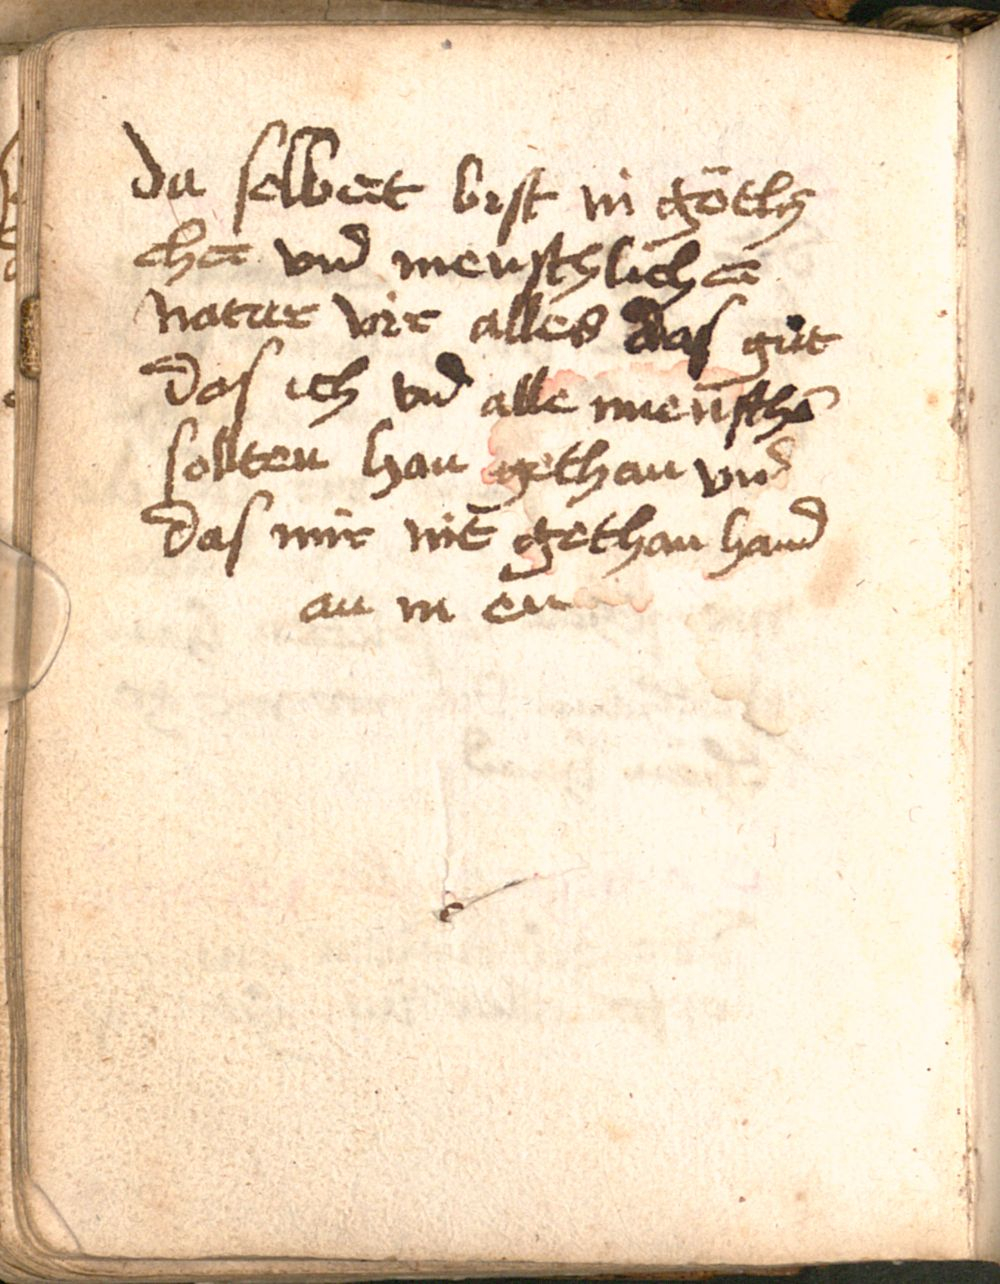 du selbert bist in götly
chē vnd menschlichē
natur vir alles das gůt
das ich vnd alle menschē
sollten han gethan vnd
das mir nit gethan hand
an in